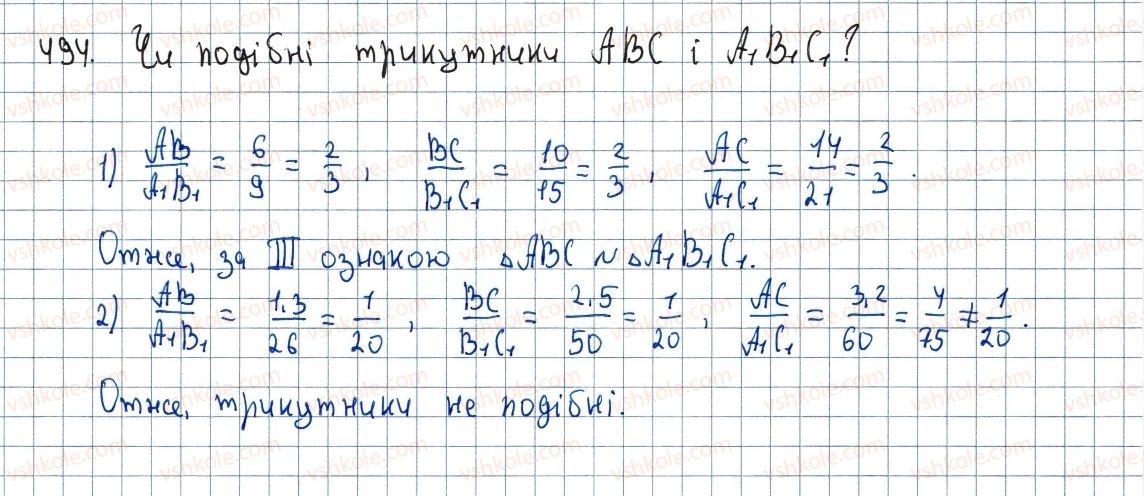 494. Чи подібні трикутники ABC і A₁B₁C₁?
1) AB/A₁B₁ = 6/9 = 2/3, BC/B₁C₁ = 10/15 = 2/3, AC/A₁C₁ = 14/21 = 2/3.
Отже, за III ознакою △ABC ~ △A₁B₁C₁.
2) AB/A₁B₁ = 1,3/26 = 1/20, BC/B₁C₁ = 2,5/50 = 1/20, AC/A₁C₁ = 3,2/60 = 4/75 ≠ 1/20.
Отже, трикутники не подібні.